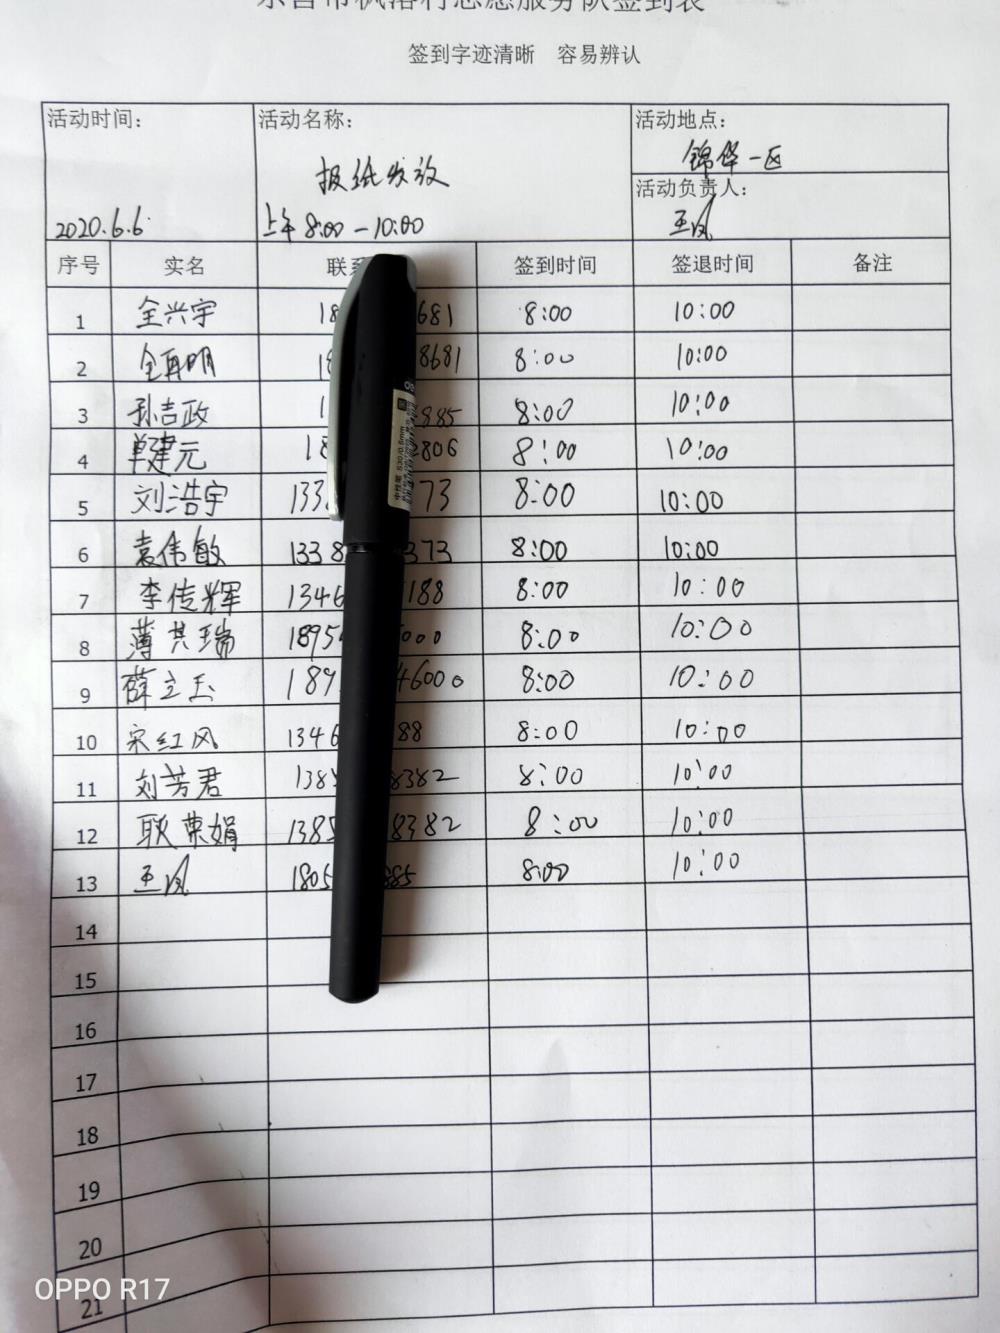 签到字迹清晰 容易辨认
活动时间: 活动名称: 活动地点:
锦华一区
报纸发放
活动负责人:
2020.6.6. 上午 8:00-10:00 王凤
序号 实名 联系 签到时间 签退时间 备注
1 全兴宇 18 681 8:00 10:00
2 全再明 18 8681 8:00 10:00
3 孙吉政 1 885 8:00 10:00
4 单建元 18 806 8:00 10:00
5 刘浩宇 133 73 8:00 10:00
6 袁伟敏 1338 373 8:00 10:00
7 李传辉 1346 188 8:00 10:00
8 薄其瑞 1895 000 8:00 10:00
9 薛立玉 189 46000 8:00 10:00
10 宋红风 1346 88 8:00 10:00
11 刘芳君 138 8382 8:00 10:00
12 耿荣娟 1385 8382 8:00 10:00
13 王凤 1805 885 8:00 10:00
14
15
16
17
18
19
20
21
OPPO R17